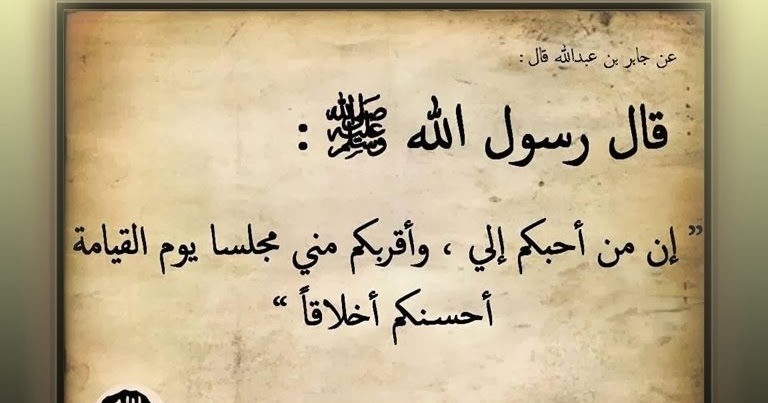 عن جابر بن عبدالله قال :
قال رسول الله ﷺ :
” إن من أحبكم إلي ، وأقربكم مني مجلسا يوم القيامة
أحسنكم أخلاقاً “
الله